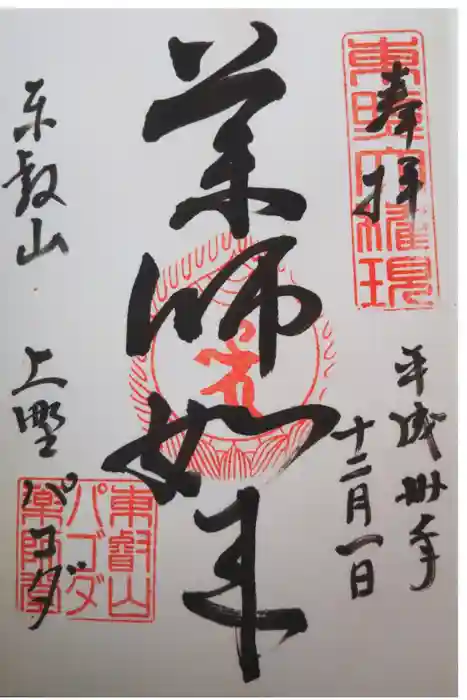 奉拝
東照大権現
平成卅年
十二月一日
薬師如来
東叡山
上野パゴダ
東叡山
パゴダ
薬師堂